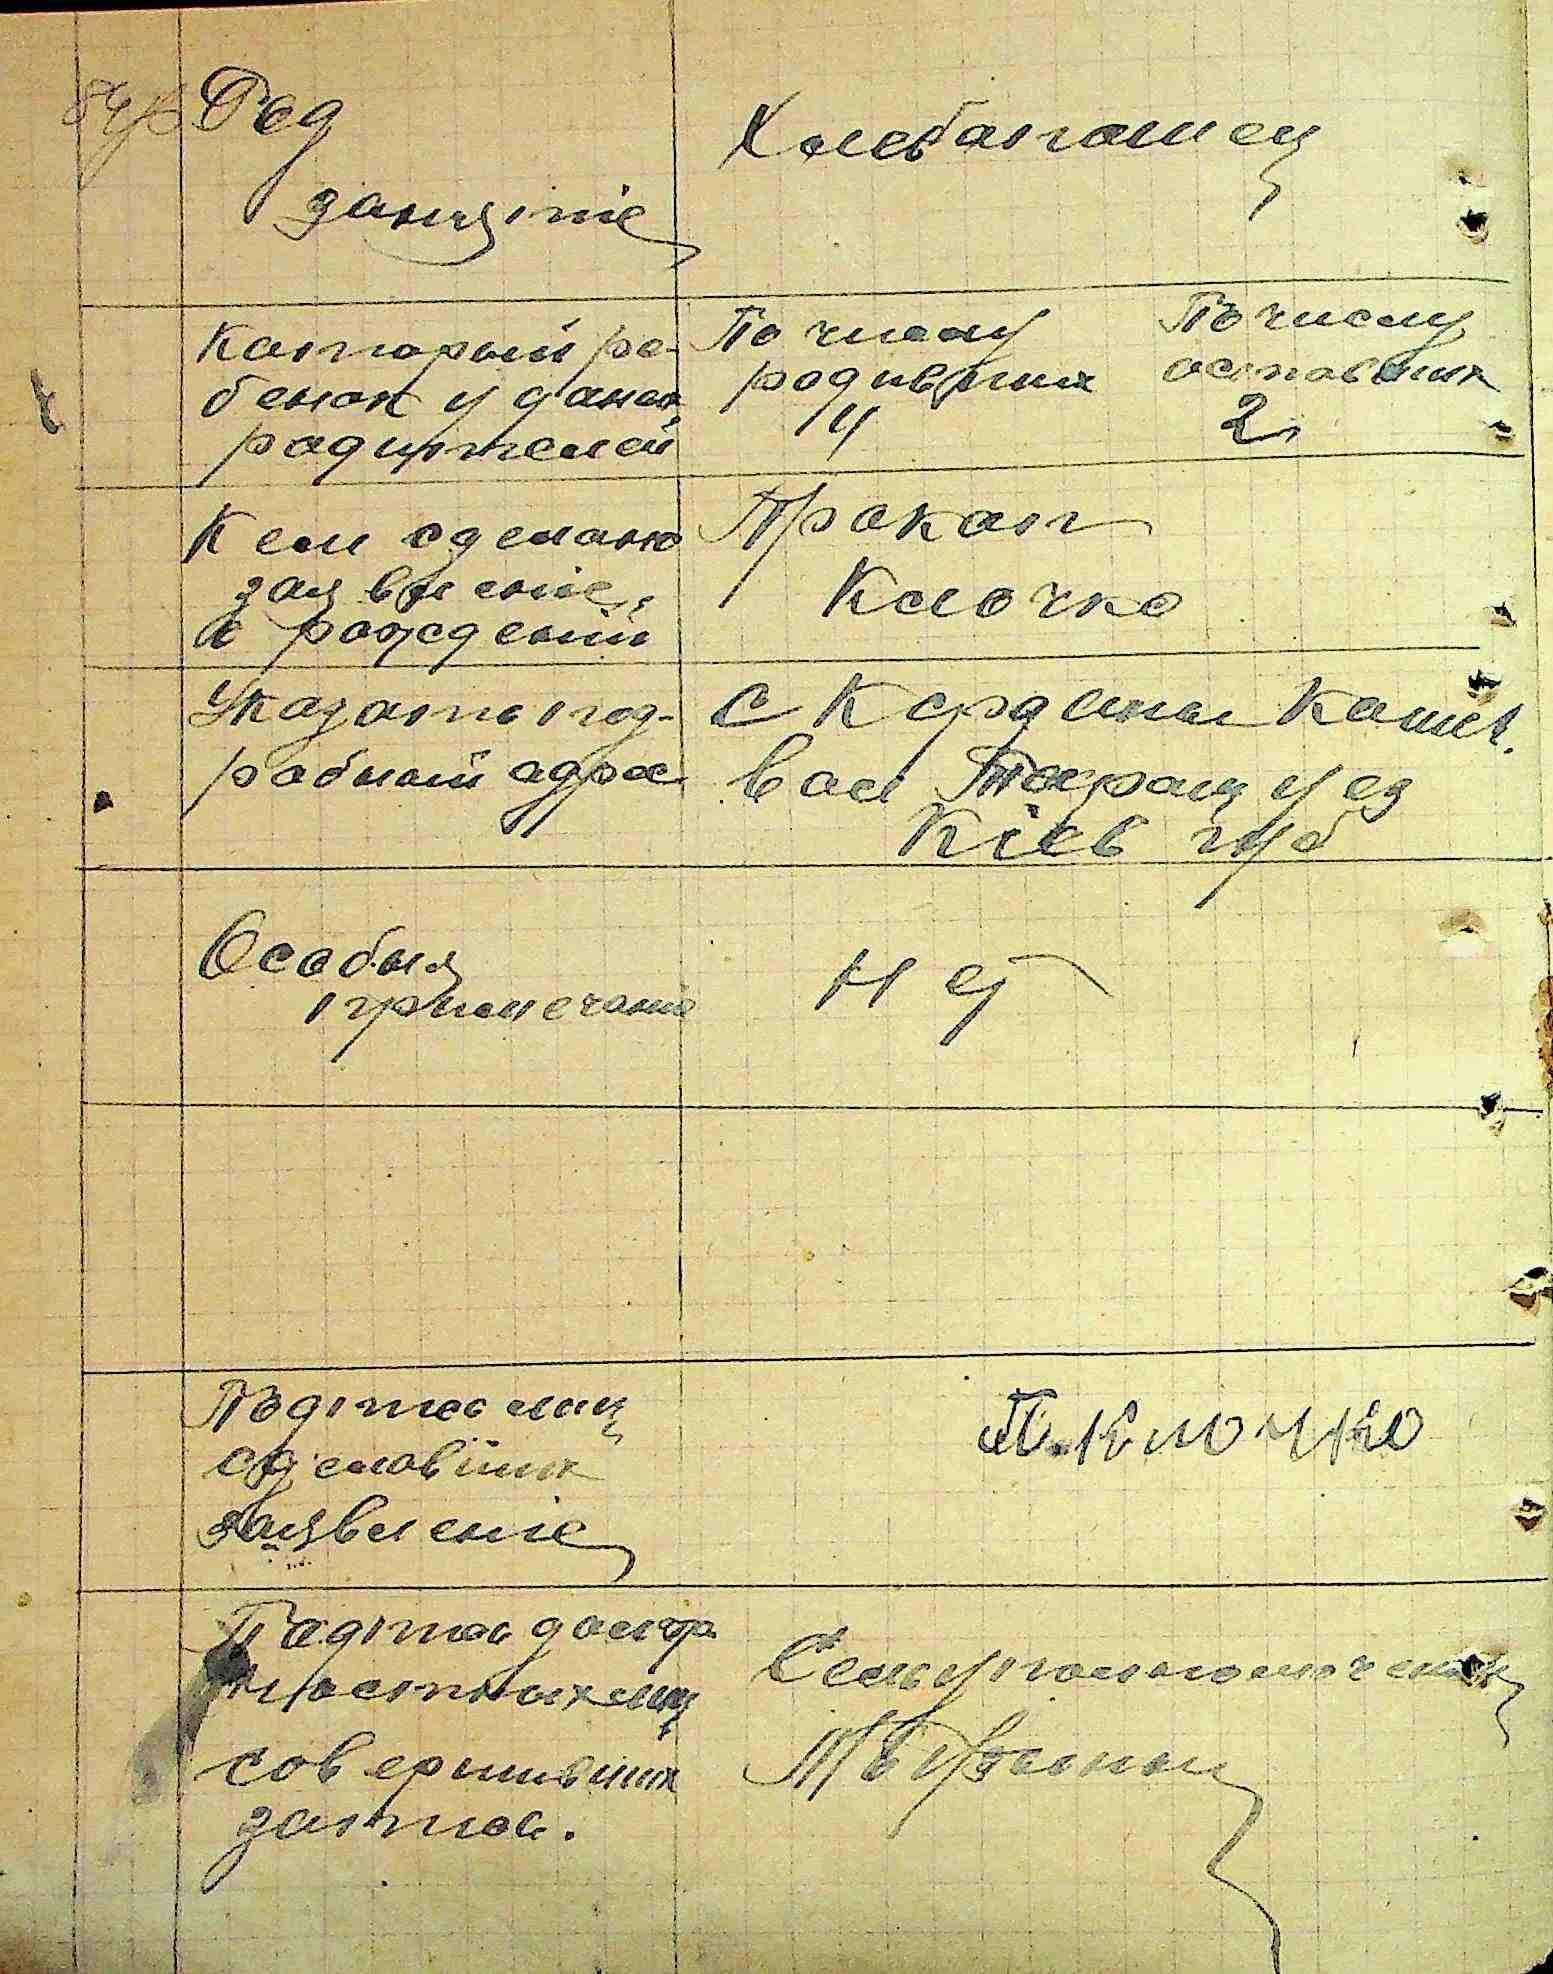 Род
занятіе
Хлебапашец
Каторый ре-
бенок у даных
радителей
По числу
родивших
4
По числу
оставшихся
2
Кем сделано
заявленіе
о рожденій
Пракоп
Клочко
Указать под-
робный адрес
с Кердан
вол Таращ уез
Кіев губ
Особыя
примечаніе
Нет
Подпись лиц
сделавших
заявленіе
П. Клочко
Подпись
лиц
совершивших
запись.